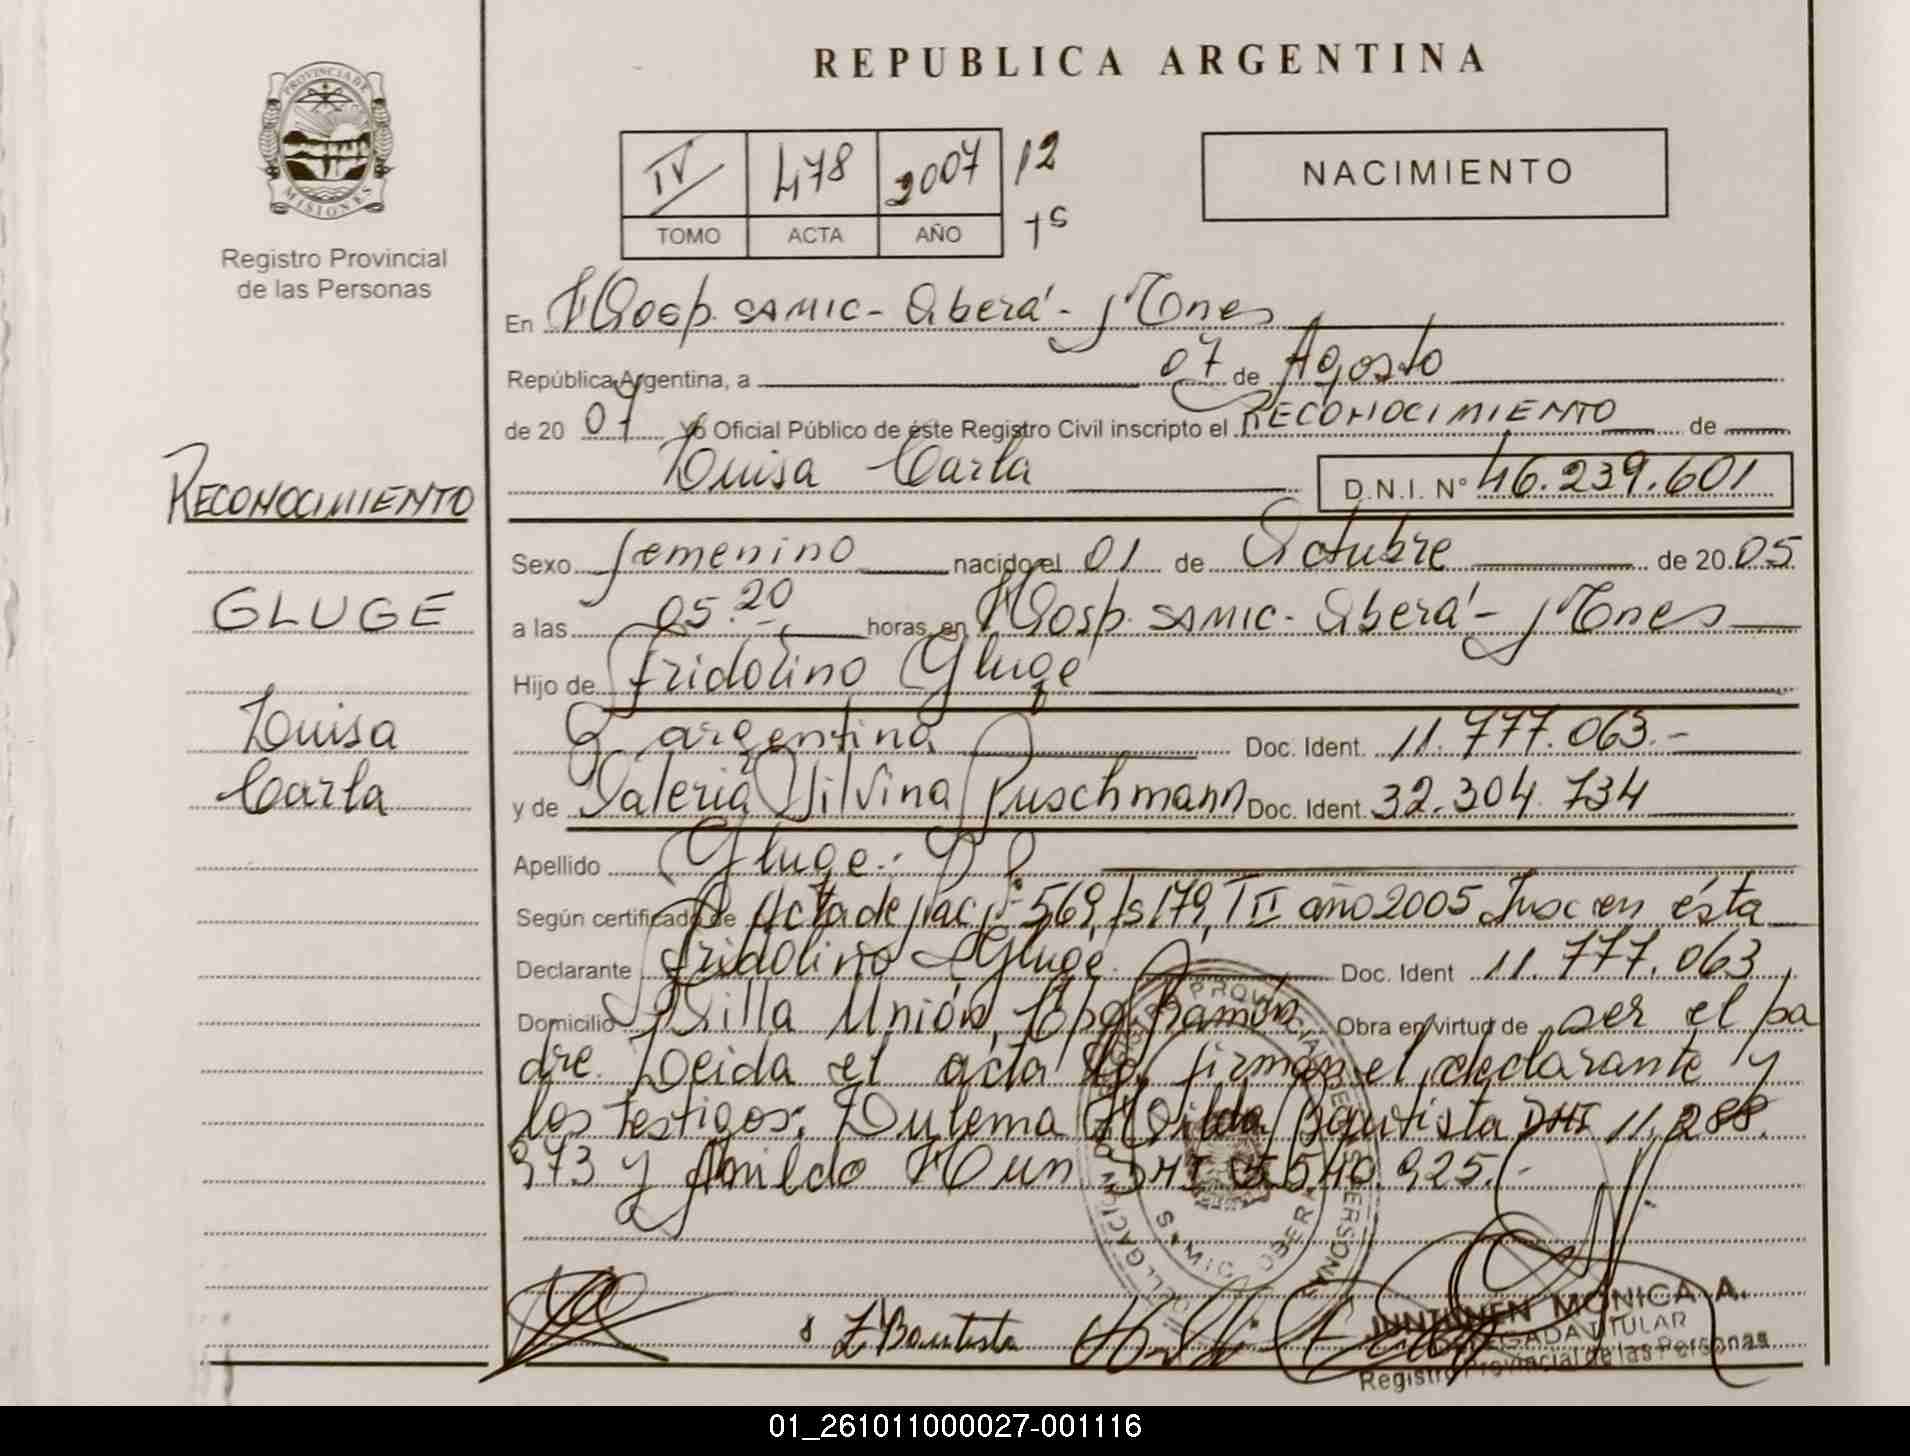 PROVINCIA DE
MISIONES
Registro Provincial
de las Personas
REPUBLICA ARGENTINA
IV 478 2007 12
TOMO ACTA AÑO
NACIMIENTO
En Hosp. SAMIC - Oberá - Mnes
República Argentina, a 07 de Agosto
de 20 07 Yo Oficial Público de éste Registro Civil inscripto el RECONOCIMIENTO de
Luisa Carla D.N.I. N° 46.239.601
RECONOCIMIENTO
Sexo femenino nacido el 01 de Octubre de 20 05
GLUGE
a las 05.20 horas, en Hosp. SAMIC - Oberá - Mnes
Hijo de Fridolino Gluge
Luisa
argentina Doc. Ident. 11.777.063.-
Carla
y de Valeria Silvina Puschmann Doc. Ident. 32.304.734
Apellido Gluge.
Según certificado de Acta de Nac. 569, fs 179, T II año 2005 Insc en ésta
Declarante Fridolino Gluge Doc. Ident 11.777.063
Domicilio Villa Unión, Cpo. Ramón, Obra en virtud de ser el pa
dre. Leida el acta la firman el declarante y
los testigos: Zulema Hilda Bautista DNI 11.288.
973 y Anildo Hun DNI 5.540.925.-
Z Bautista
JUNTUNEN MONICA A.
DELEGADA TITULAR
Registro Provincial de las Personas
01_261011000027-001116